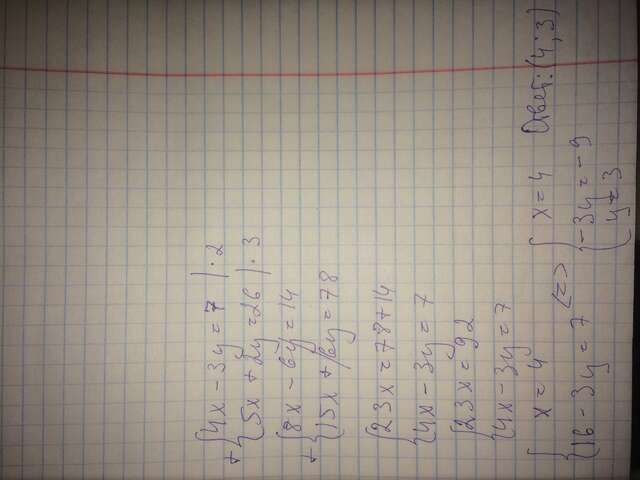 + { 4x - 3y = 7 | · 2
5x + 2y = 26 | · 3
+ { 8x - 6y = 14
15x + 6y = 78
{ 23x = 78 + 14
4x - 3y = 7
{ 23x = 92
4x - 3y = 7
{ x = 4
16 - 3y = 7
<=> { x = 4
-3y = -9
y = 3
Ответ: (4; 3)